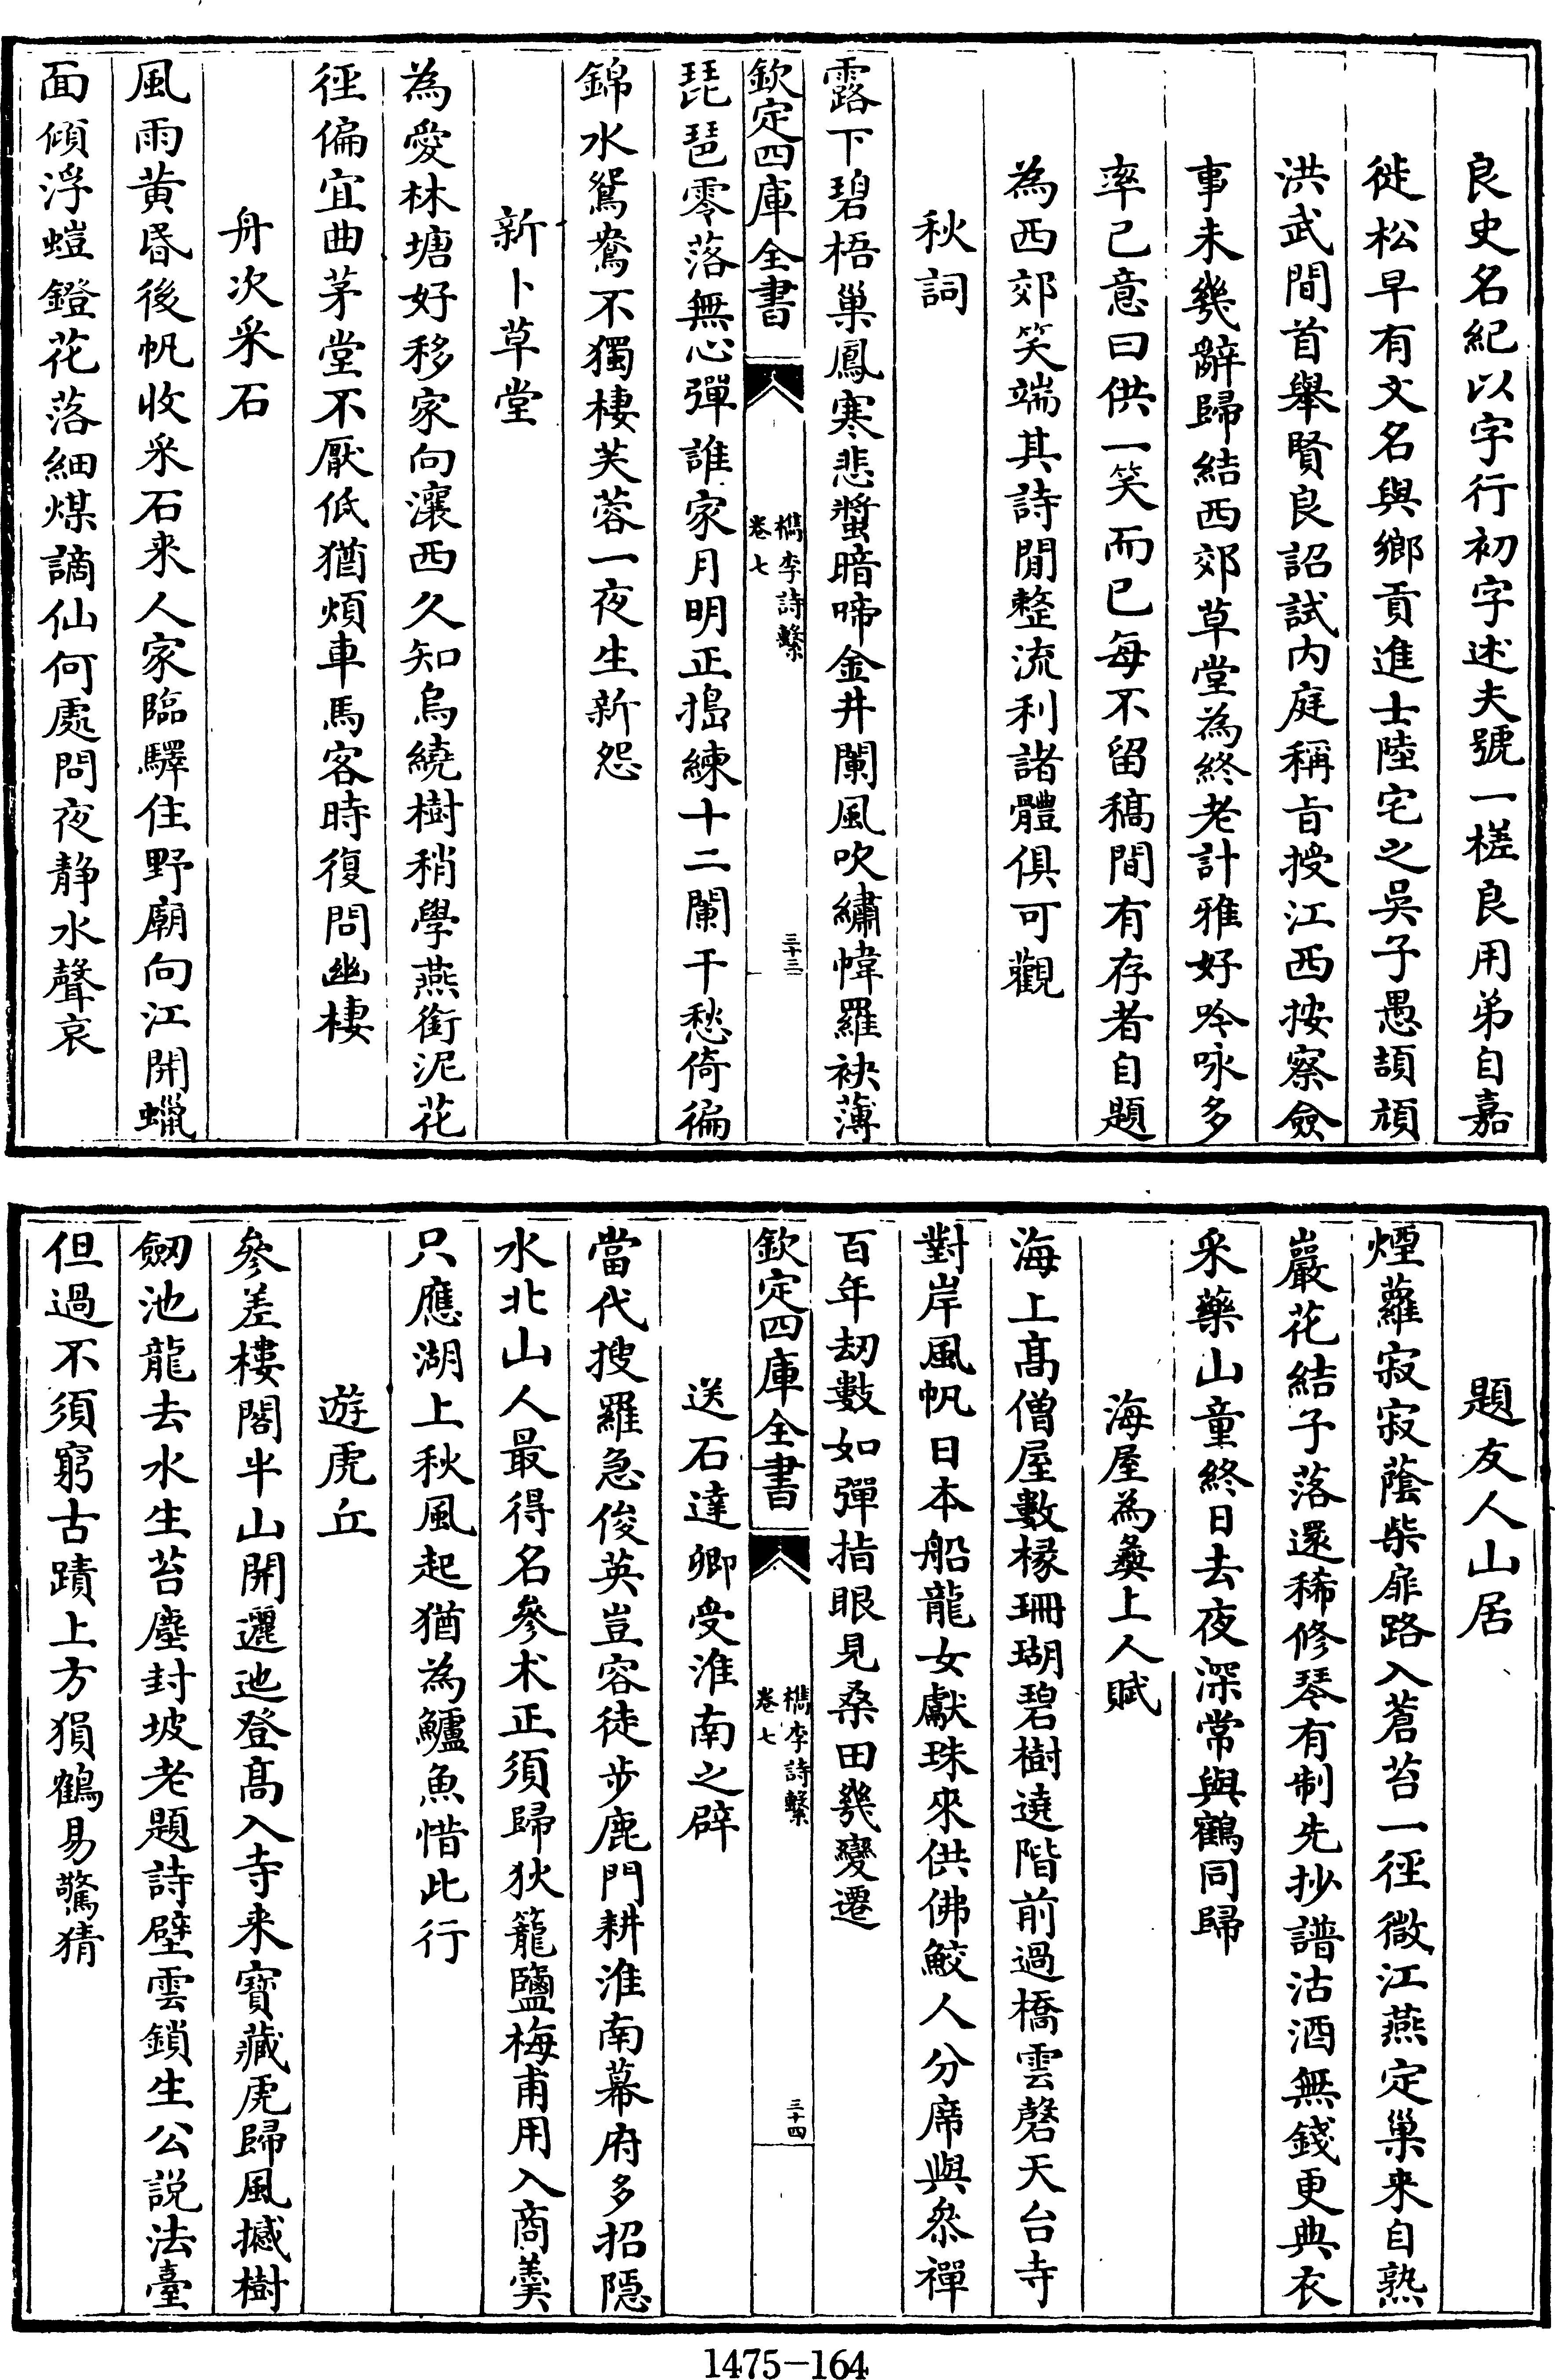 良史名紀以字行初字述夫號一槎良用弟自嘉
徙松早有文名與鄉貢進士陸宅之吳子愚頡頏
洪武間首舉賢良詔試內庭稱旨授江西按察僉
事未幾辭歸結西郊草堂為終老計雅好吟咏多
率己意曰供一笑而已每不留稿間有存者自題
為西郊笑端其詩閒整流利諸體俱可觀
秋詞
露下碧梧巢鳳寒悲螿暗啼金井闌風吹繡幃羅袂薄
欽定四庫全書
檇李詩繫
卷七
三十三
琵琶零落無心彈誰家月明正搗練十二闌干愁倚徧
錦水鴛鴦不獨棲芙蓉一夜生新怨
新卜草堂
為愛林塘好移家向瀼西久知烏繞樹稍學燕銜泥花
徑偏宜曲茅堂不厭低猶煩車馬客時復問幽棲
舟次采石
風雨黃昏後帆收采石来人家臨驛住野廟向江開蠟
面傾浮螘鐙花落細煤謫仙何處問夜静水聲哀
題友人山居
煙蘿寂寂蔭柴扉路入蒼苔一徑微江燕定巢来自熟
巖花結子落還稀修琴有制先抄譜沽酒無錢更典衣
采藥山童終日去夜深常與鶴同歸
海屋為彝上人賦
海上髙僧屋數椽珊瑚碧樹遶階前過橋雲磬天台寺
對岸風帆日本船龍女獻珠來供佛鮫人分席與叅禪
百年刼數如彈指眼見桑田幾變遷
欽定四庫全書
檇李詩繫
卷七
三十四
送石達卿受淮南之辟
當代搜羅急俊英豈容徒步鹿門耕淮南幕府多招隱
水北山人最得名參术正須歸狄籠鹽梅甫用入商羹
只應湖上秋風起猶為鱸魚惜此行
遊虎丘
參差樓閣半山開邐迆登髙入寺来寶藏虎歸風撼樹
劒池龍去水生苔塵封坡老題詩壁雲鎖生公説法臺
但過不須窮古蹟上方猿鶴易驚猜
1475-164